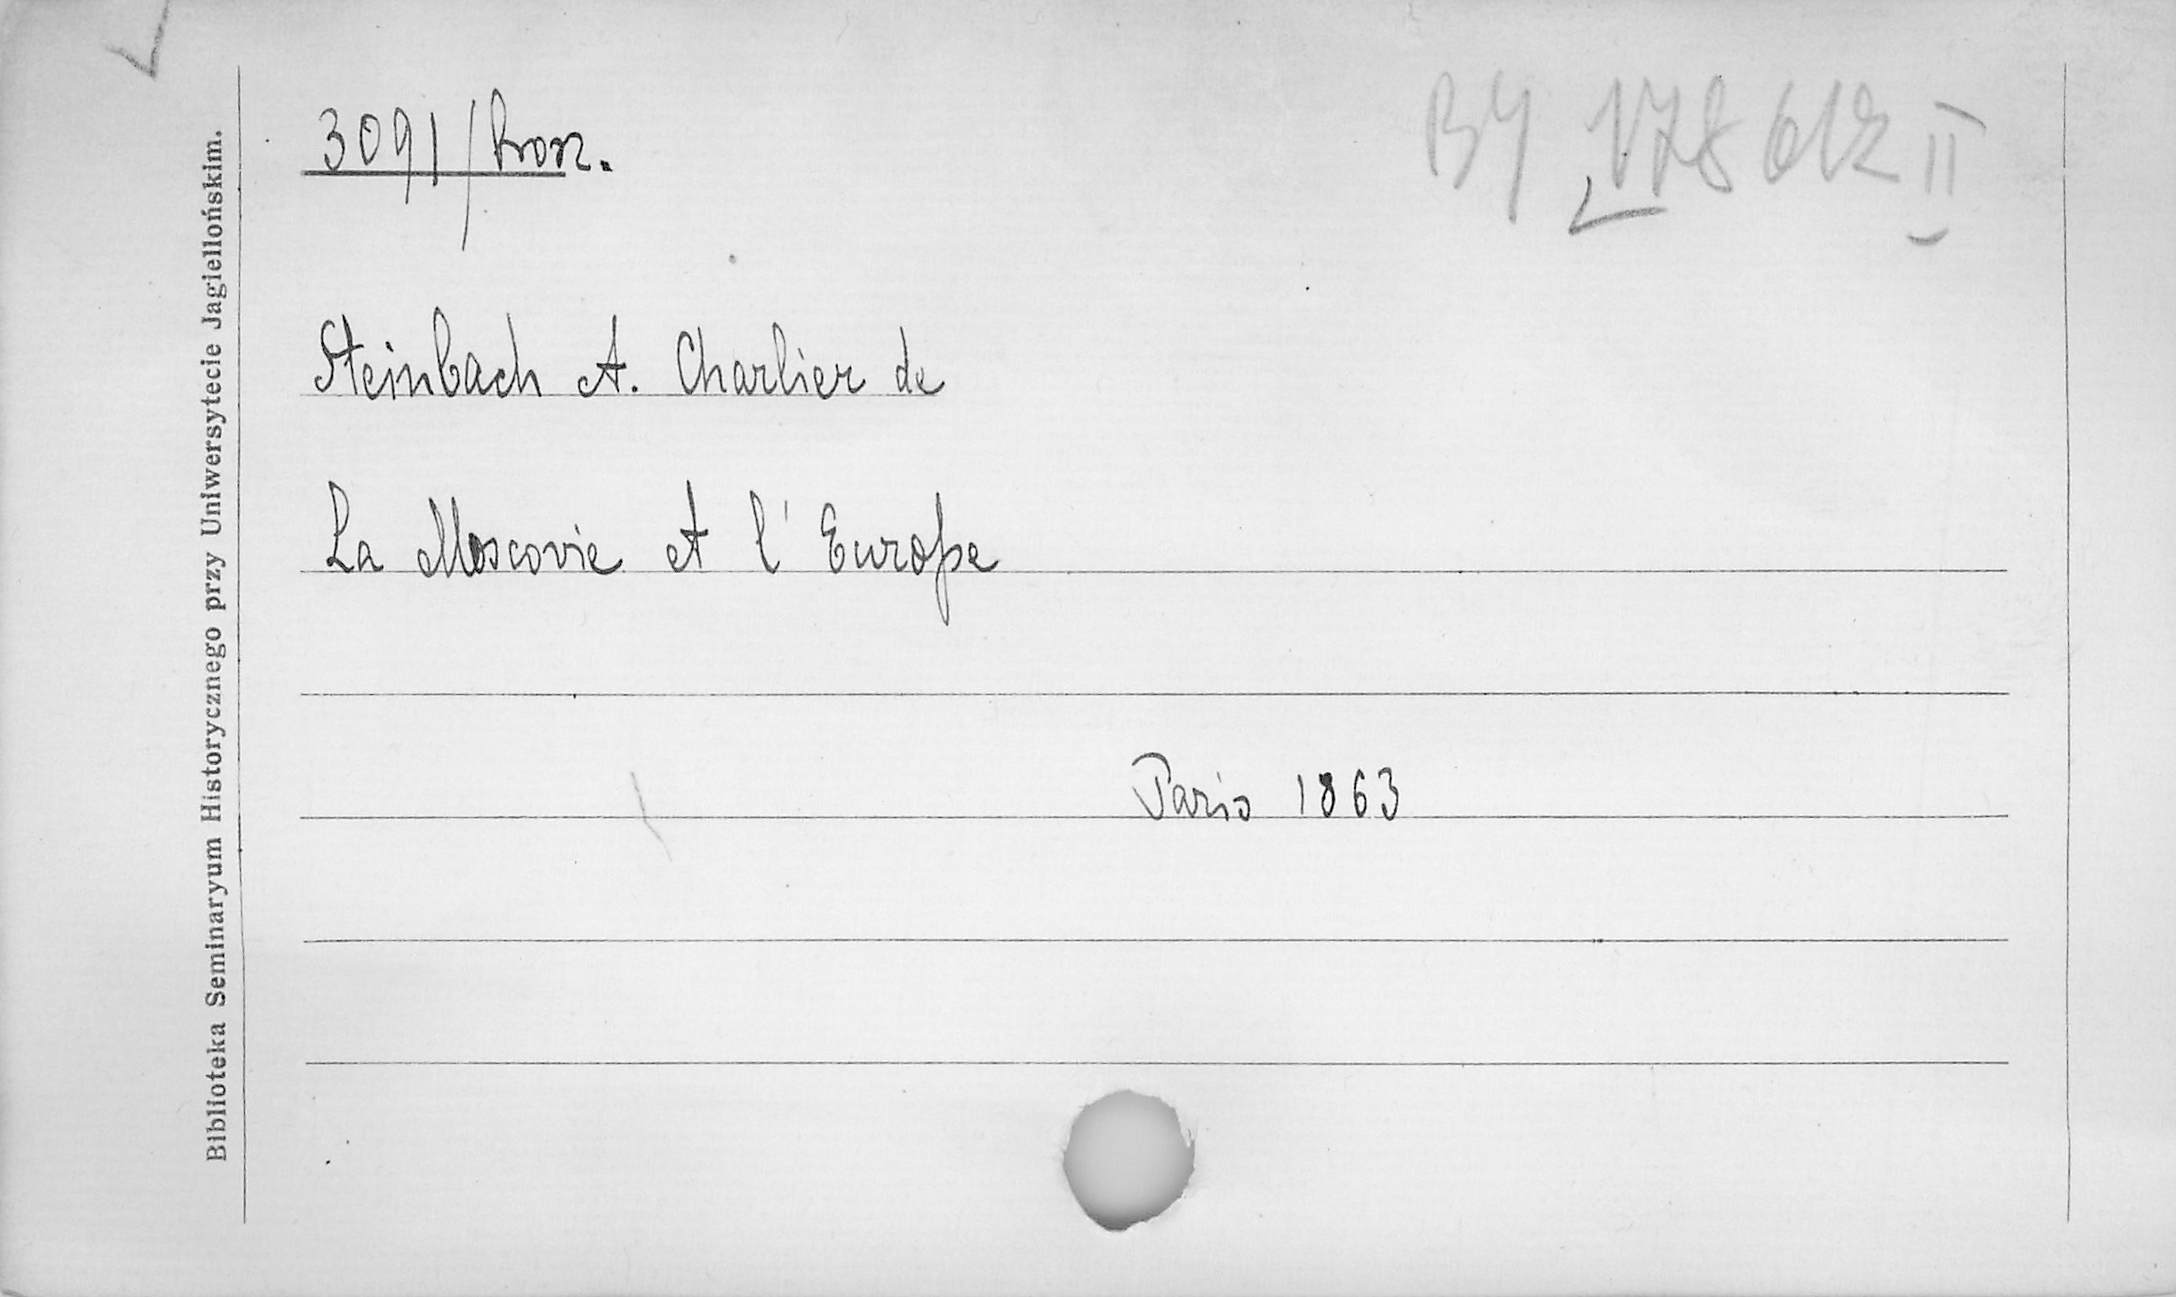 3091/Broz.
BJ 178612 II
Steinbach A. Charlier de
La Moscovie et l'Europe
Paris 1863
Biblioteka Seminaryum Historycznego przy Uniwersytecie Jagiellońskim.